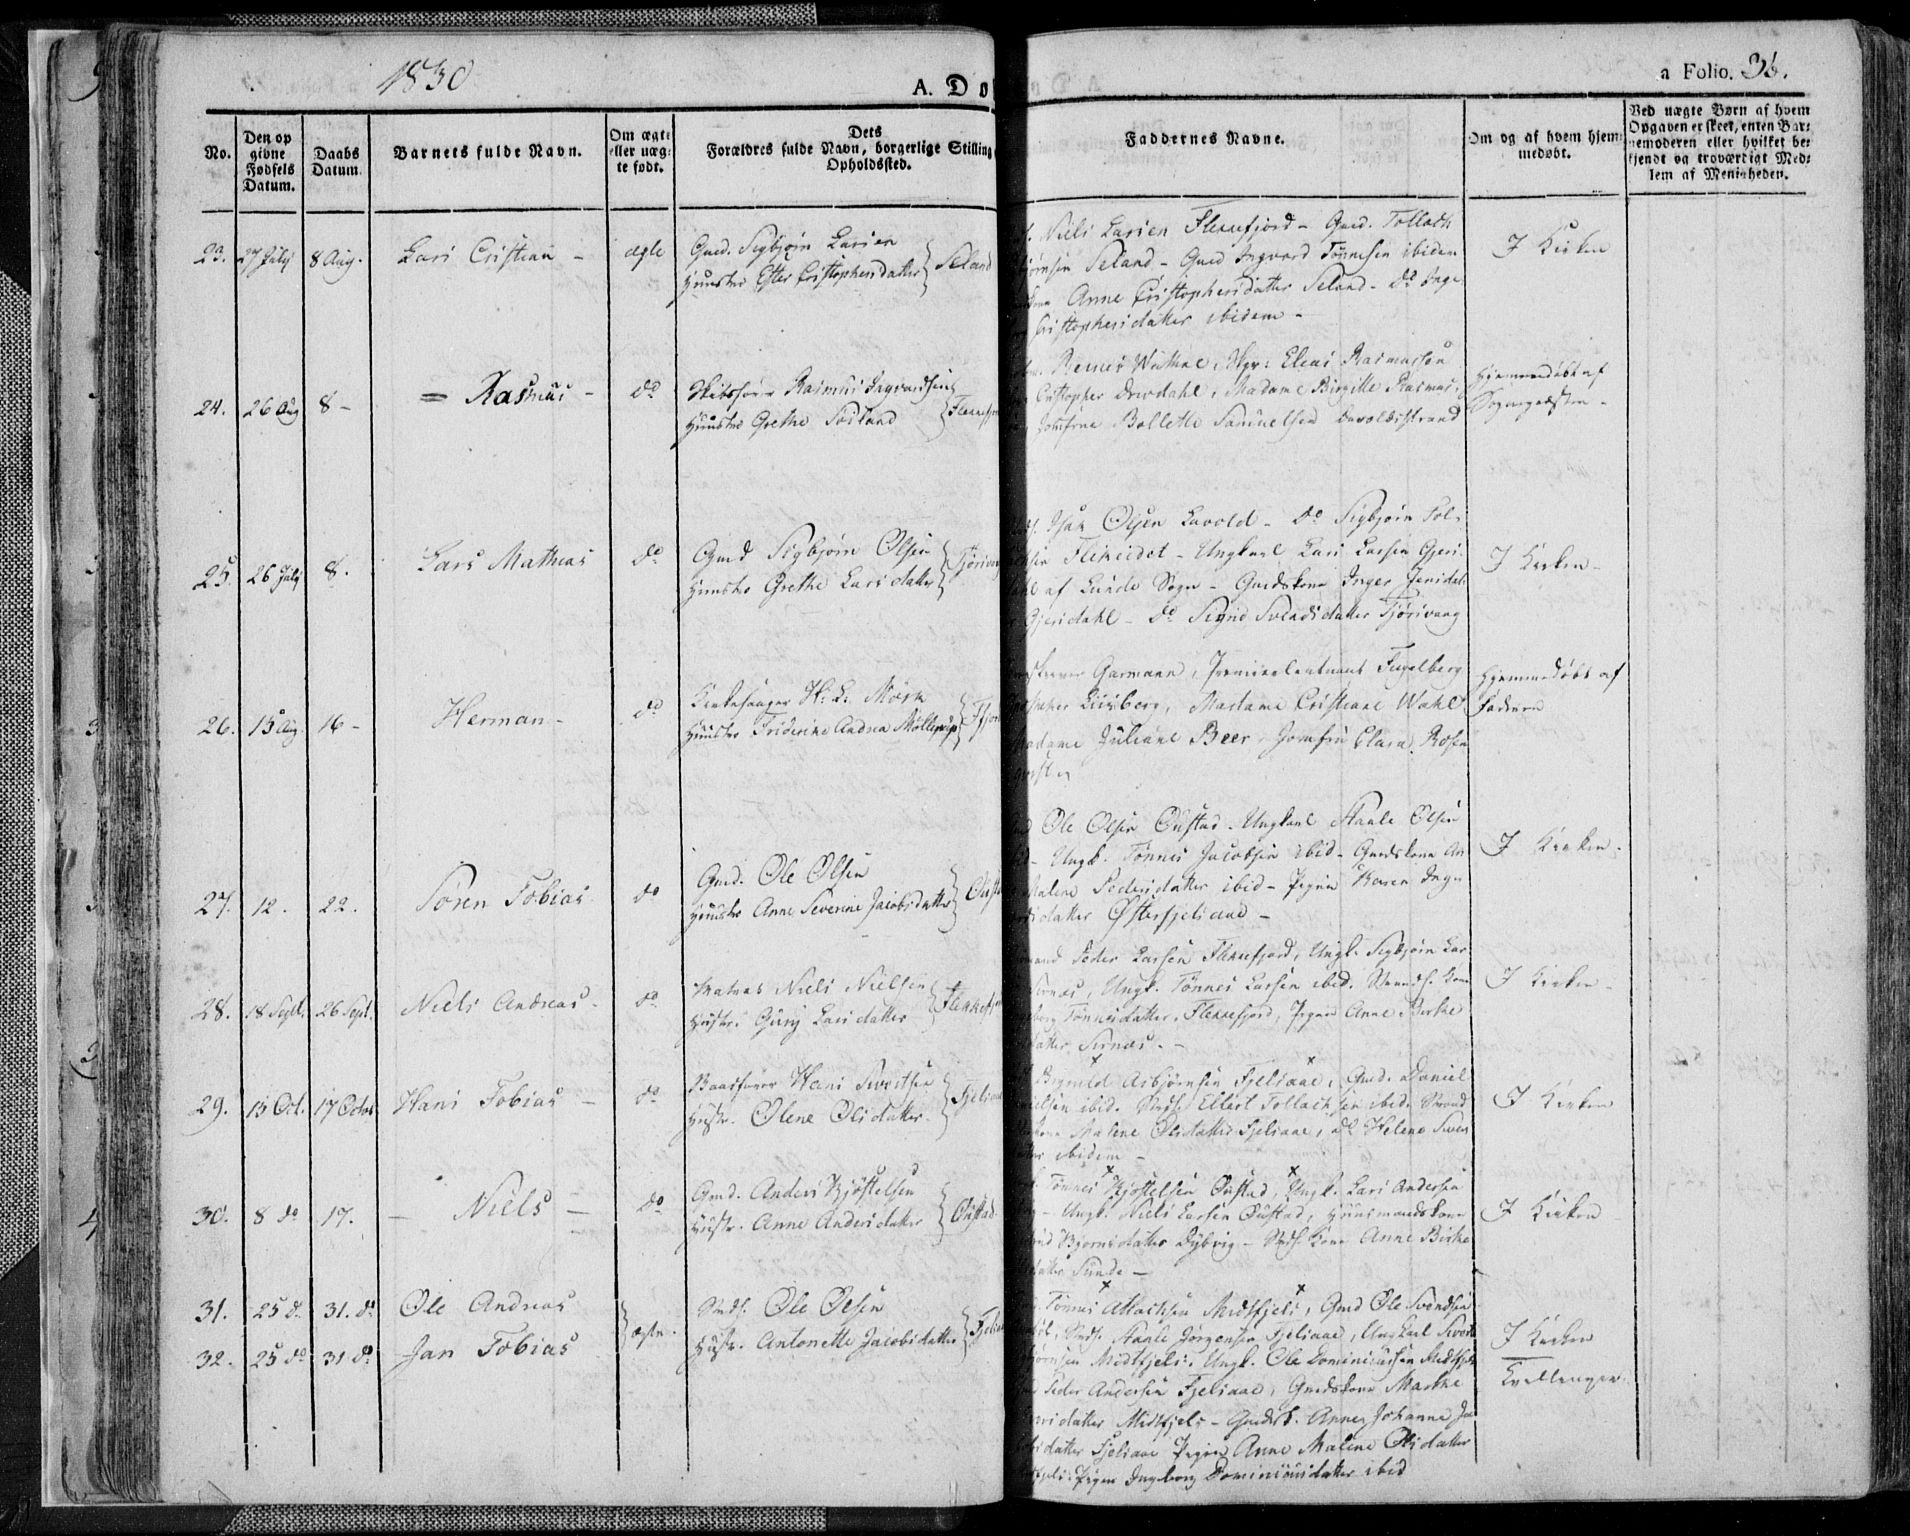 1830
A. Do
a Folio. 36.
No.
Den op
givne
Fødsels
Datum.
Daabs
Datum.
Barnets fulde Navn.
Om ægte
eller uæg-
te født.
Dets
Forældres fulde Navn, borgerlige Stilling
Opholdssted.
Faddernes Navne.
Om og af hvem hjem-
medøbt.
Ved uægte Børn af hvem
Opgaven er skeet, enten Bar-
nemoderen eller hvilket be-
kjendt og troværdigt Med-
lem af Menigheden.
23. 27 July 8 Aug. Lars Cristian - ægte
Gmd. Sigbjørn Larsen
Huustr. Ester Cristophersdatter } Seland
Niels Larsen Flekkefjord - Gmd. Tollach
bjørnsen Seland - Gmd Ingvard Tønnesen ibidem
Anne Cristophersdatter Seland - do Inge
Cristophersdatter ibidem -
I Kirken
24. 26 Aug 8 - = Rasmus - do
Rasmus Ingvardsen
Huustro Grethe Sødland
Reiner Wathne, Skpr: Elias Rasmussen
Cristopher Drivdahl, Madame Birgitte Rasmus,
Jomfrue Bollette Samuelsen Anvoldsstrand
Hjemmedøbt af
Sognepræsten -
25. 26 July 8. Lars Mathias do
Gmd Sigbjørn Olsen
Huustro Grethe Larsdatter
Isak Olsen Lavold - do Sigbjørn Tol-
Flikeidet - Ungkarl Lars Larsen Gjers-
dahl af Lunde Sogn - Gmdskone Inger Jensdat
Gjersdahl - do Signe Svendsdatter Fjørsvaag
I Kirken -
26. 15 Aug 16 - Herman - do
Kirkesanger H. L. Mørk
Huustro Friderike Andrea Møllerup
Garmann, Premierleutnant Fugelberg
Madame Cristiane Wahl
Madame Juliane Beer - Jomfru Clara Rosen
qvist
Hjemmedøbt af
Faderen
27. 12. 22. Søren Tobias do
Gmd. Ole Olsen
Huustro Anne Severine Jacobsdatter
Ole Olsen Oustad - Ungkarl Staale Olsen
- Ungk. Tønnes Jacobsen ibid - Gmdskone An
Malene Pedersdatter ibid - Pigen Karen Inge
datter Østerfjelsaae -
I Kirken -
28. 18 Sept. 26 Sept. Niels Andreas - do
Matros Niels Nielsen
Hustr. Gury Larsdatter } Flekkefj
Peder Larsen Flekkefjord, Ungk. Sigbjørn Lar
Sirnæs, Ungk. Tønnes Larsen ibid. Strands. Kone
Tønnesdatter, Flekkefjord, Pigen Anne Birthe
datter, Sirnæs. -
I Kirken -
29. 13 Oct. 17 Octbr. Hans Tobias - do
Hans Sivertsen
Hustr. Olene Olsdatter } Fjelsaae
Asbjørnsen Fjelsaae, Gmd. Daniel
Nielsen ibid. Stds. Ellert Tollachsen ibid. Strand
Malene Olsdatter Fjelsaae, do Helene Siver
ibidem -
I Kirken
30. 8 do 17. - Niels - do
Gmd. Anders Kjøstelsen
Hustr. Anne Andersdatter } Oustad
Tønnes Kjøstelsen Oustad, Ungk. Lars Andersen
- Ungk. Niels Larsen Oustad, Huusmandskone
Bjørnsdatter Dybvig - Stds. Kone Anne Birthe
datter Sunde -
I Kirken
31. 25 do 31. do Ole Andreas
32. 25 do 31 do Jan Tobias } ægte.
Stds. Ole Olsen
Hustr. Antonette Jacobsdatter
Tønnes Atlachsen Midtfjels, Gmd Ole Svendsen
Stds. Staale Jørgensen Fjelsaae, Ungkarl Sivert
bjørnsen Midtfjels, Ungk. Ole Dominicussen Midtfjels
Peder Andersen Fjelsaae, Gmdskone Marthe
datter Midtfjels - Gmdsk. Anne Johanne Ja
datter Fjelsaae Pigen Anne Malene Olsdatter
Pigen Ingeborg Dominicusdatter ibid
I Kirken
Tvillinger